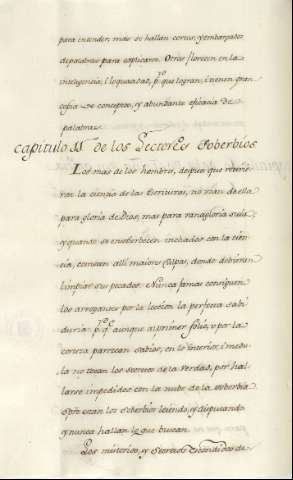 para entender, mas se hallan cortos, y embarazados
de palabras para explicarse. Otros florecen en la
inteligencia, i loquacidad, pq.e logran, i tienen gran
copia de conceptos, y abundante eficacia de
palabras.
Capitulo de los Lectores Soberbios
Los mas de los hombres, despues que
la ciencia de las Scrituras, no usan de ella
para gloria de Dios, mas para vanagloria suia,
y quando se ensoberbecen inchados con la cien-
cia, cometen alli maiores culpas, donde debieran
limpiar sus pecados. Nunca jamas consiguen
los arrogantes por la leccion la perfecta sabi-
duria: pq.e aunque al primer folio, o por la
corteza parezcan sabios, en lo interior, i medu-
la no tocan los secretos de la verdad, por ha-
llarse impedidos con la nube de la soberbia
los soberbios leiendo, y disputando
y nunca hallan lo que buscan
Los misterios, y Secretos Escondidos de